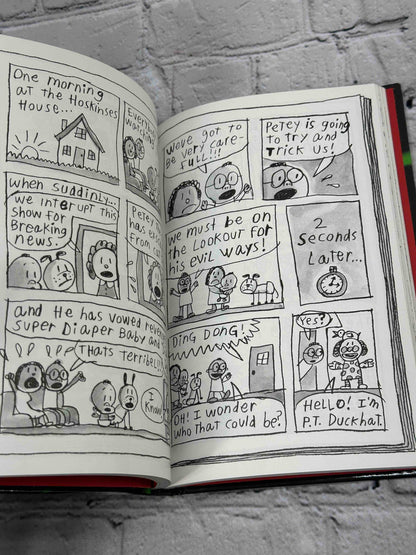 One morning
at the Hoskinses
House...
when suddinly...
we interupt this
show for
Breaking
news.
Petey
has es
from
and He has vowed reve
super Diaper Baby and
THATS TerribeL
I
Know
Weve got to
be very care-
FULL!!!
Petey is going
to try and
Trick us!
we must be on
the Lookour for
his evil ways!
2
Seconds
Later...
DING DONG!
OH! I wonder
who That could be?
Yes?
HELLO! I'm
P.T. Duckhat.